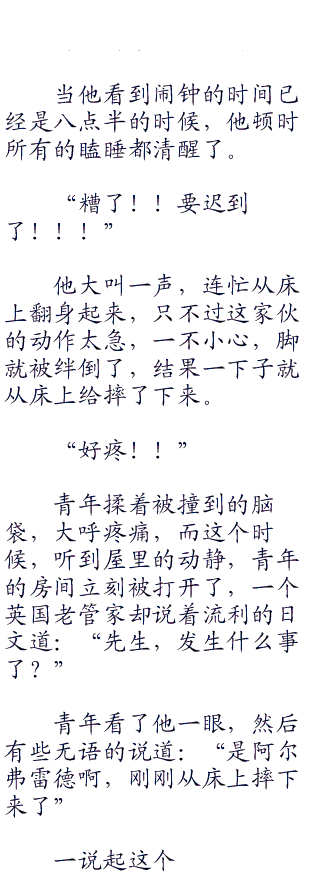 当他看到闹钟的时间已
经是八点半的时候，他顿时
所有的瞌睡都清醒了。
“糟了！！要迟到
了！！！”
他大叫一声，连忙从床
上翻身起来，只不过这家伙
的动作太急，一不小心，脚
就被绊倒了，结果一下子就
从床上给摔了下来。
“好疼！！”
青年揉着被撞到的脑
袋，大呼疼痛，而这个时
候，听到屋里的动静，青年
的房间立刻被打开了，一个
英国老管家却说着流利的日
文道：“先生，发生什么事
了？”
青年看了他一眼，然后
有些无语的说道：“是阿尔
弗雷德啊，刚刚从床上摔下
来了”
一说起这个